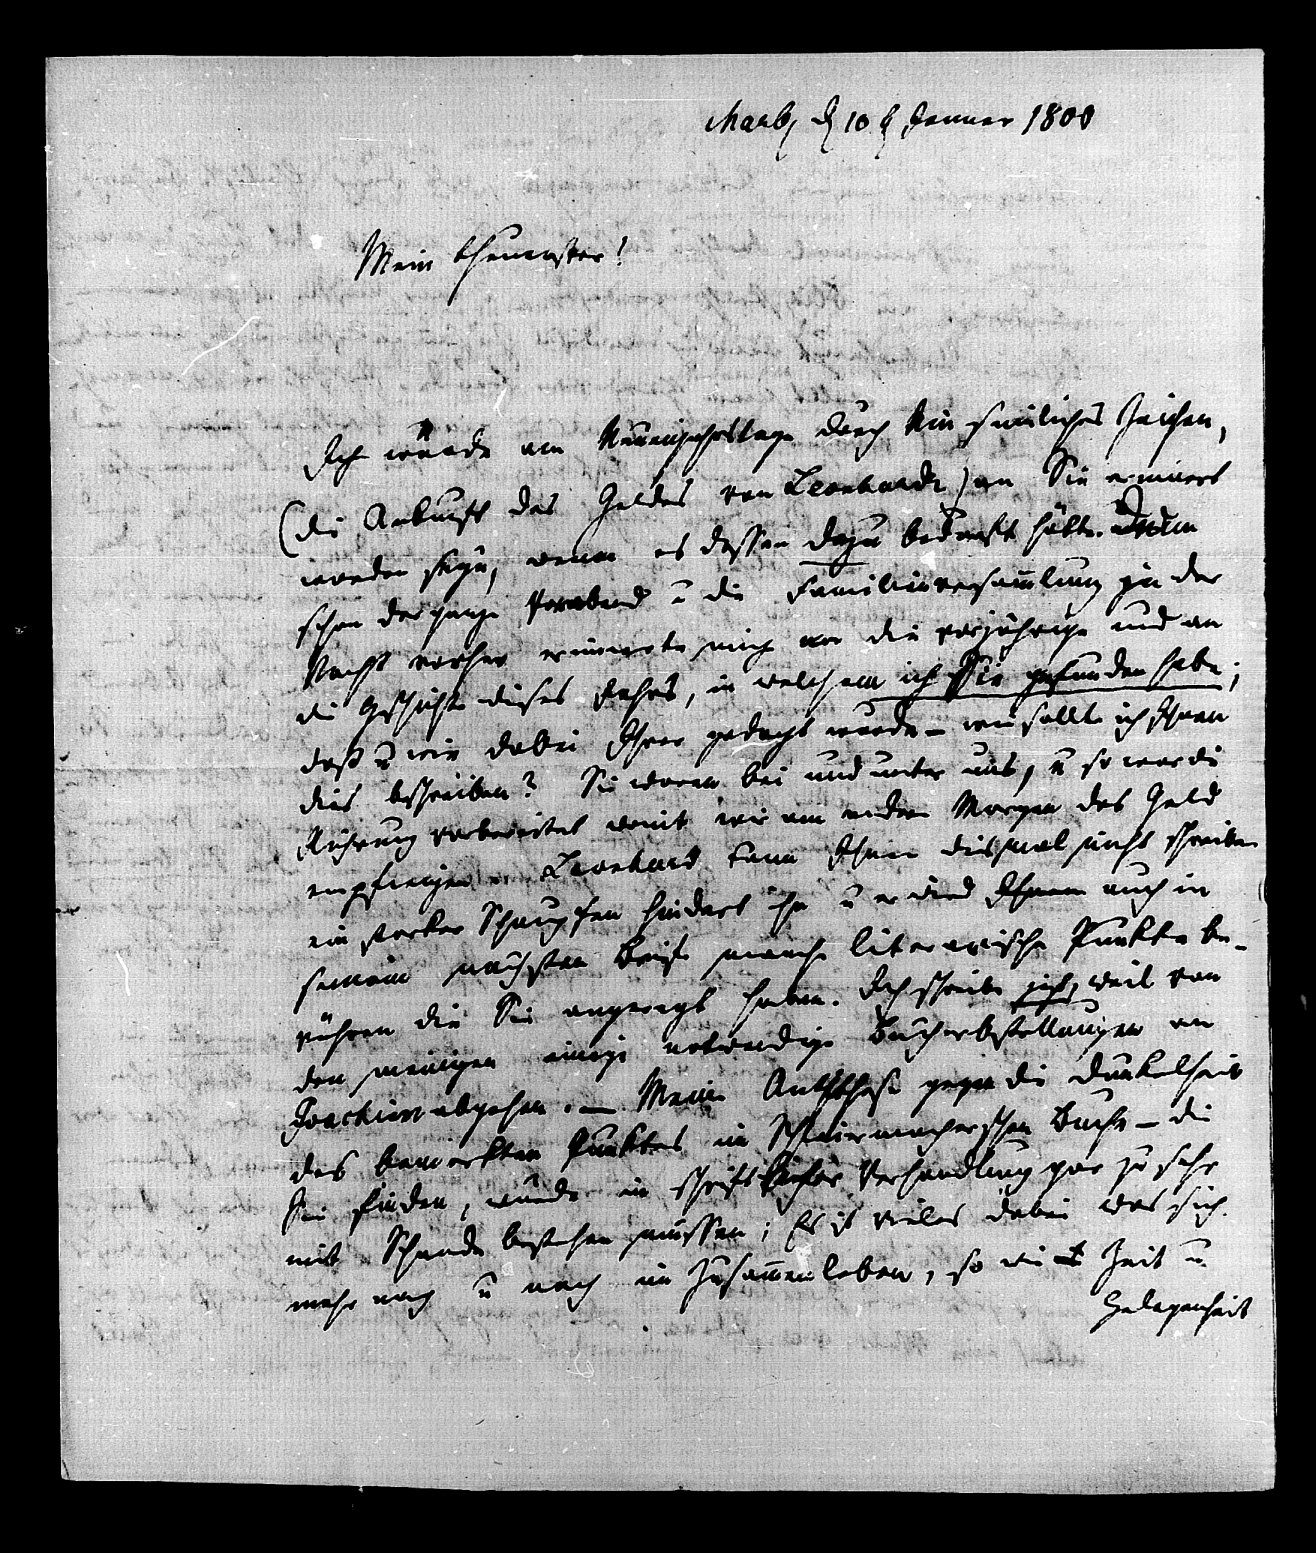 Marb, d 10 t Jenner 1800
Mein theuerster!
Ich würde am Neuenjahrstage durch kein sinnliches Zeichen,
(die Ankunft des Geldes von Leonhardi) an Sie erinnert
worden seyn, wenn es dessen dazu bedurft hätte. Denn
schon der ganze Vorabend u die Familienversamlung in der
Nacht vorher erinnerte mich an die vorjährige und an
die Geschichte dieses Jahrs, in welchem ich Sie gefunden habe;
daß u wie dabei Ihrer gedacht wurde – wie sollte ich Ihnen
dies beschreiben? Sie waren bei und unter uns, u so war die
Rührung vorbereitet womit wir am andern Morgen das Geld
empfiengen. Leonhard kann Ihnen diesmal nicht schreiben
ein starker Schnupfen hindert ihn u er wird Ihnen auch in
seinem nächsten Briefe manche literarische Punkte be-
rühren die Sie angeregt haben. Ich schreibe jetzt, weil von
den meinigen einige notwendige Bücherbestellungen an
abgehen. – Meine Antithese gegen die Dunkelheit
des bemerkten Punktes im Schleiermacherschen Buche – die
Sie finden, würde in schriftlicher Verhandlung gar zu sehr
mit Schande bestehen müssen; Es ist vieles dabei was sich
mehr nach u nach im Zusammenleben, so wie Zeit u
Gelegenheit